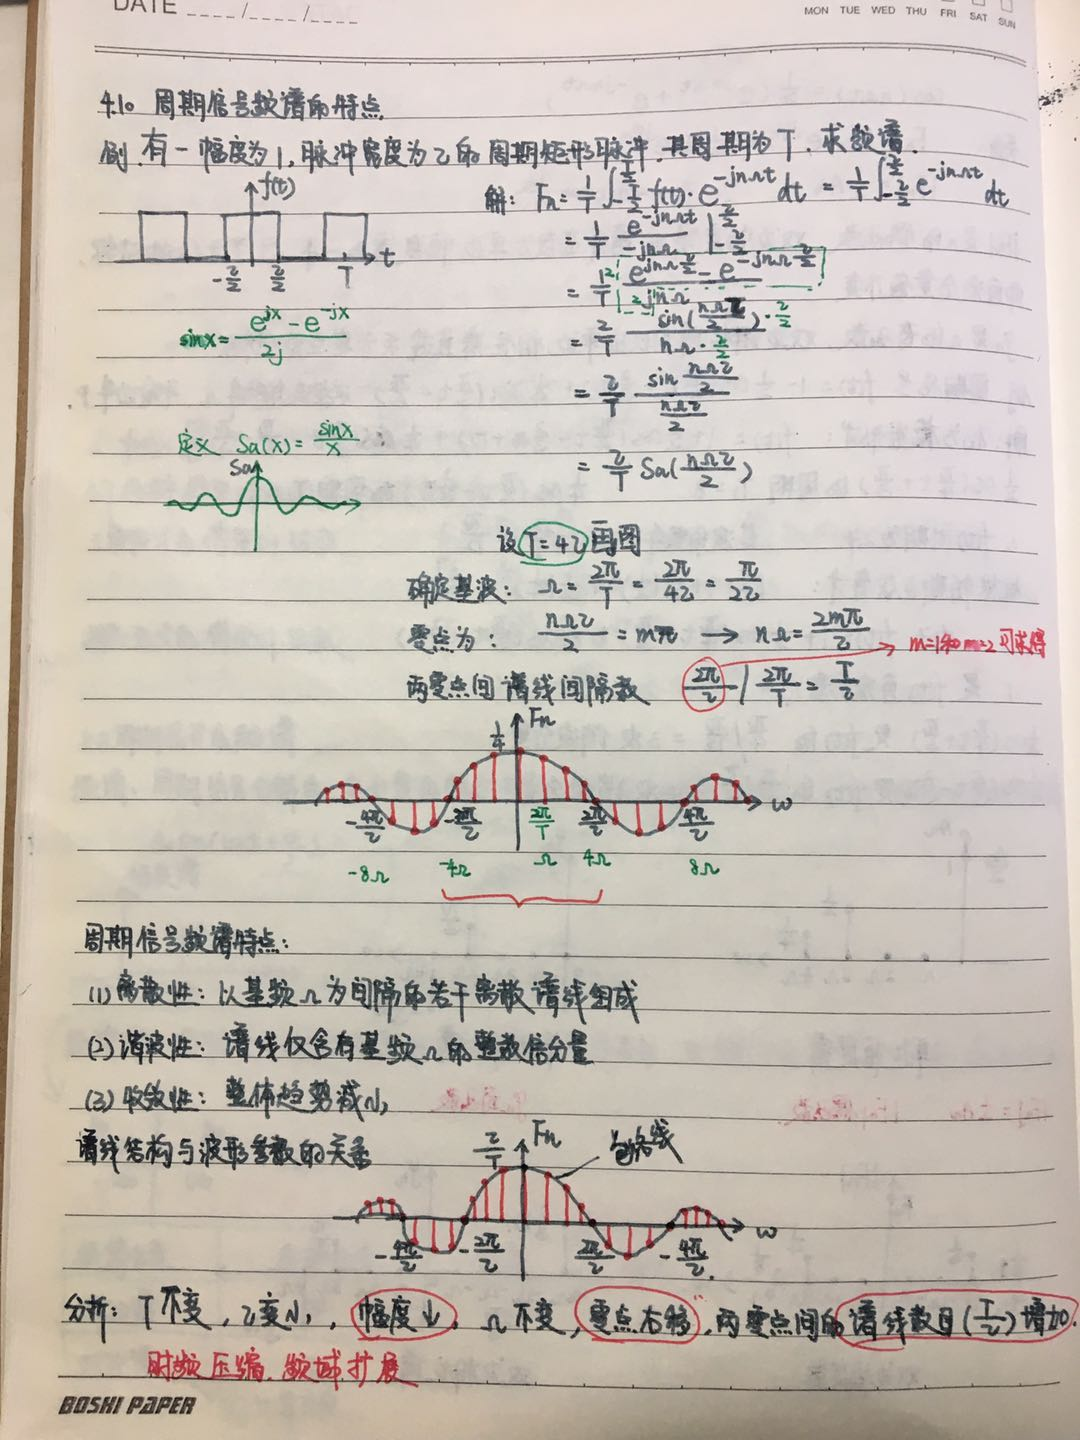 DATE ____/____/____
MON TUE WED THU FRI SAT SUN
4.10 周期信号频谱的特点
例.有一幅度为1,脉冲宽度为τ的周期矩形脉冲.其周期为T.求频谱.
f(t)
-τ/2 τ/2 T t
解: Fn = 1/T ∫_{-T/2}^{T/2} f(t)·e^{-jnΩt} dt = 1/T ∫_{-τ/2}^{τ/2} e^{-jnΩt} dt
= 1/T e^{-jnΩt}/(-jnΩ) |_{-τ/2}^{τ/2}
= 1/T 2 (e^{jnΩτ/2} - e^{-jnΩτ/2})/(2jnΩ)
sinx = (e^{jx} - e^{-jx})/2j
= 2/T sin(nΩτ/2)·τ/2 / (nΩ·τ/2)
= τ/T sin(nΩτ/2) / (nΩτ/2)
定义 Sa(x) = sinx/x
Sa
= τ/T Sa(nΩτ/2)
设 T=4τ 画图
确定基波: Ω = 2π/T = 2π/4τ = π/2τ
零点为: nΩτ/2 = mπ → nΩ = 2mπ/τ
m=1和m=2可求得
两零点间谱线间隔数 2π/τ / 2π/T = T/τ
1/4 Fn
-4π/τ -2π/τ 2π/T 2π/τ 4π/τ ω
-8Ω -4Ω Ω 4Ω 8Ω
周期信号频谱特点:
(1)离散性: 以基频Ω为间隔的若干离散谱线组成
(2)谐波性: 谱线仅含有基频Ω的整数倍分量
(3)收敛性: 整体趋势减小
谱线结构与波形参数的关系
τ/T Fn 包络线
-4π/τ -2π/τ 2π/τ -4π/τ ω
分析: T不变,τ变小, 幅度↓, Ω不变,零点右移,两零点间的谱线数目(T/τ)增加.
时频压缩.频域扩展
BOSHI PAPER